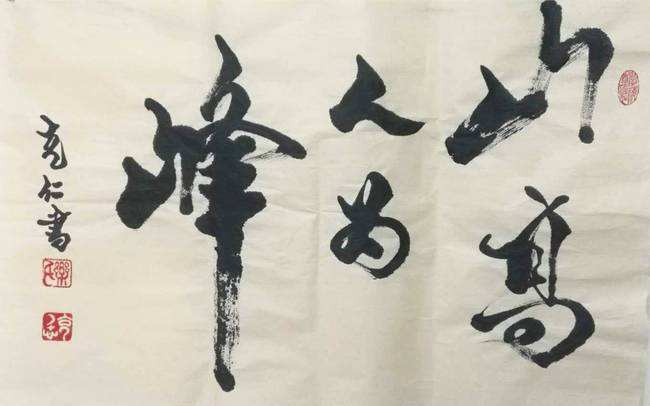 山高
人为
峰
克仁书